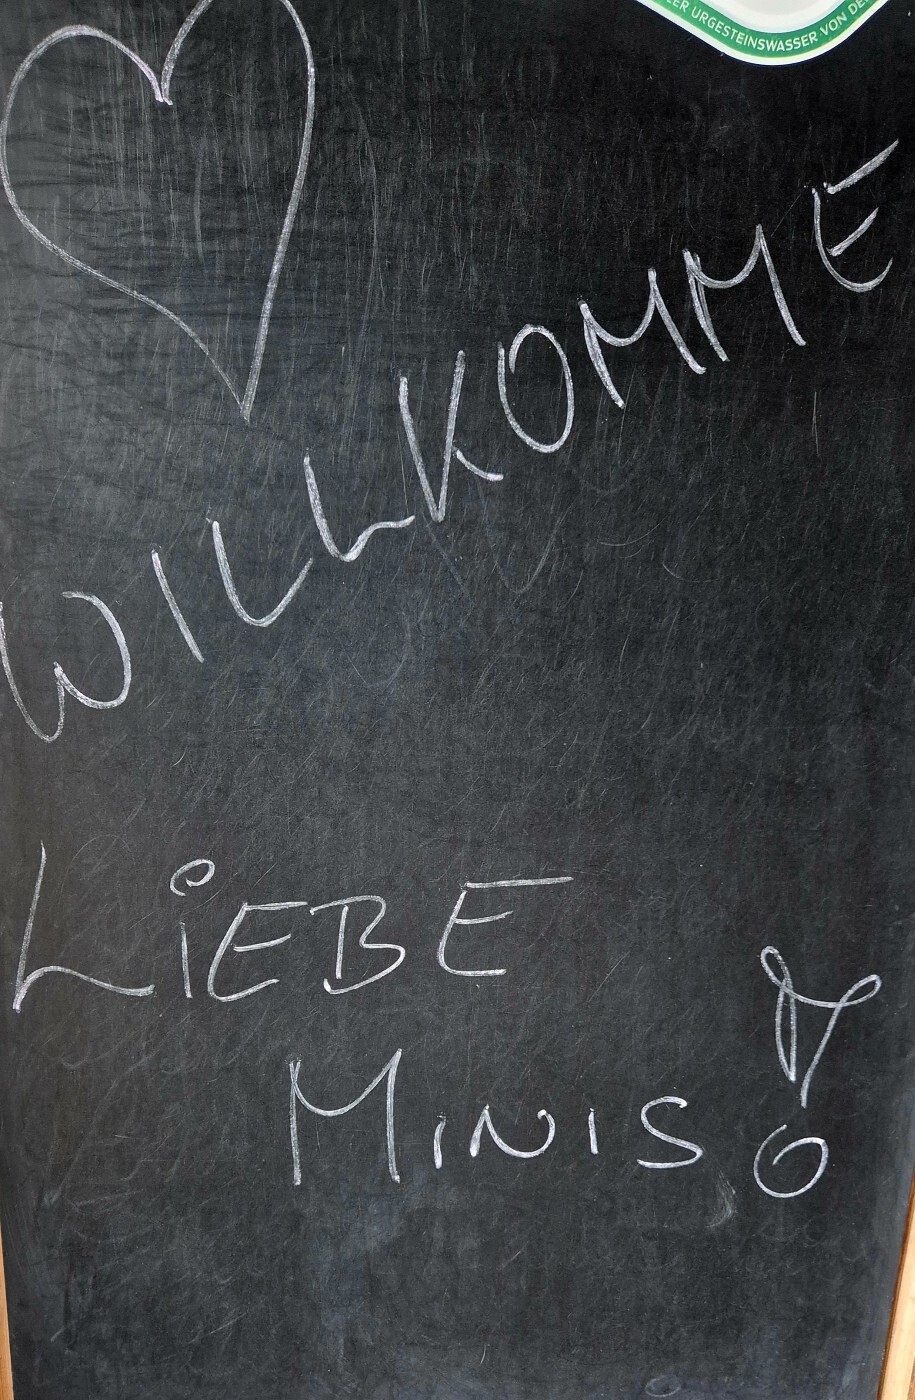 ER URGESTEINSWASSER VON DE
WILLKOMME
LiEBE
MINIS!